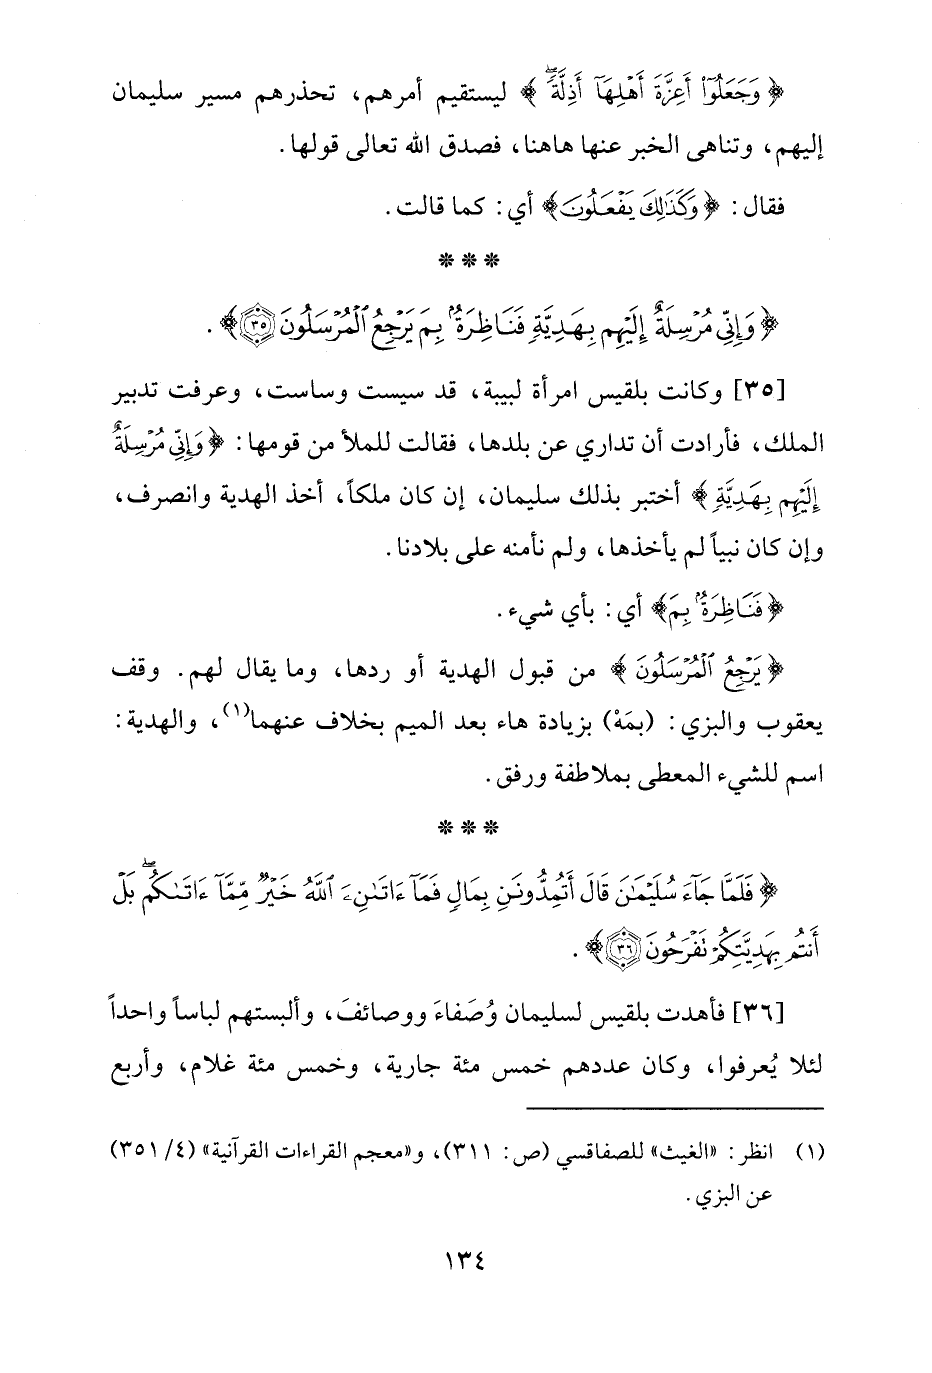 ﴿ وَجَعَلُوٓا۟ أَعِزَّةَ أَهْلِهَآ أَذِلَّةً ۖ ﴾ ليستقيم أمرهم، تحذرهم مسير سليمان
إليهم، وتناهى الخبر عنها هاهنا، فصدق الله تعالى قولها.
فقال: ﴿ وَكَذَٰلِكَ يَفْعَلُونَ ﴾ أي: كما قالت.
* * *
﴿ وَإِنِّى مُرْسِلَةٌ إِلَيْهِم بِهَدِيَّةٍ فَنَاظِرَةٌۢ بِمَ يَرْجِعُ ٱلْمُرْسَلُونَ ٣٥ ﴾.
[٣٥] وكانت بلقيس امرأة لبيبة، قد سيست وساست، وعرفت تدبير
الملك، فأرادت أن تداري عن بلدها، فقالت للملأ من قومها: ﴿ وَإِنِّى مُرْسِلَةٌ
إِلَيْهِم بِهَدِيَّةٍ ﴾ أختبر بذلك سليمان، إن كان ملكاً، أخذ الهدية وانصرف،
وإن كان نبياً لم يأخذها، ولم نأمنه على بلادنا.
﴿ فَنَاظِرَةٌۢ بِمَ ﴾ أي: بأي شيء.
﴿ يَرْجِعُ ٱلْمُرْسَلُونَ ﴾ من قبول الهدية أو ردها، وما يقال لهم. وقف
يعقوب والبزي: (بمَهْ) بزيادة هاء بعد الميم بخلاف عنهما(١)، والهدية:
اسم للشيء المعطى بملاطفة ورفق.
* * *
﴿ فَلَمَّا جَآءَ سُلَيْمَٰنَ قَالَ أَتُمِدُّونَنِ بِمَالٍ فَمَآ ءَاتَىٰنِۦَ ٱللَّهُ خَيْرٌ مِّمَّآ ءَاتَىٰكُم ۖ بَلْ
أَنتُم بِهَدِيَّتِكُمْ تَفْرَحُونَ ٣٦ ﴾.
[٣٦] فأهدت بلقيس لسليمان وُصَفاءَ ووصائفَ، وألبستهم لباساً واحداً
لئلا يُعرفوا، وكان عددهم خمس مئة جارية، وخمس مئة غلام، وأربع
(١) انظر: «الغيث» للصفاقسي (ص: ٣١١)، و«معجم القراءات القرآنية» (٤/ ٣٥١)
عن البزي.
١٣٤